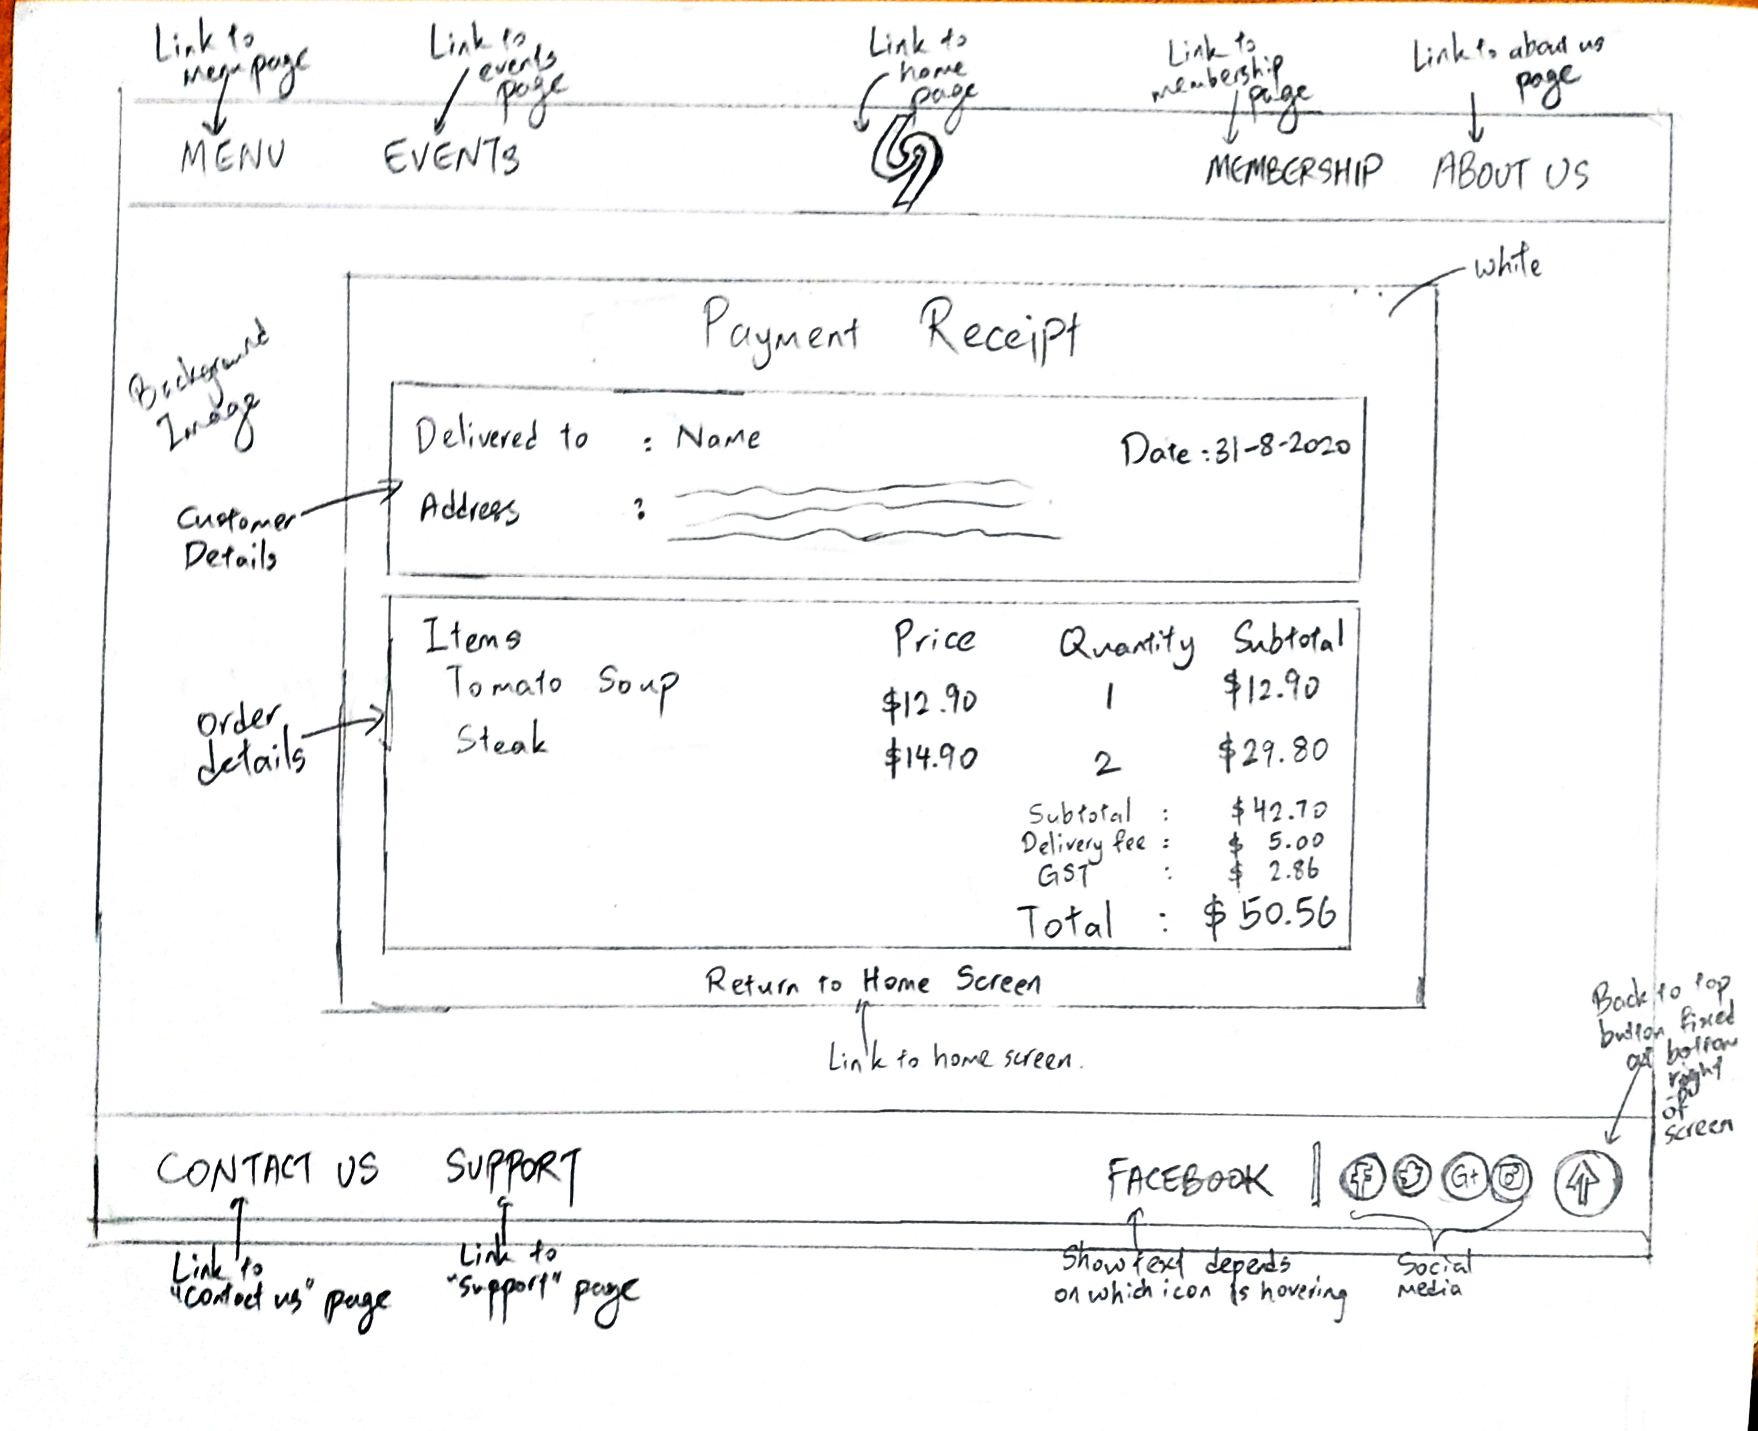 Link to
menu page
Link to
events
page
Link to
home
page
Link to
membership
page
Link to about us
page
MENU EVENTS MEMBERSHIP ABOUT US
white
Payment Receipt
Background
Image
Delivered to : Name Date : 31-8-2020
Address :
Customer
Details
Items Price Quantity Subtotal
Tomato Soup $12.90 1 $12.90
Steak $14.90 2 $29.80
Order
details
Subtotal : $42.70
Delivery fee : $ 5.00
GST : $ 2.86
Total : $50.56
Return to Home Screen
Link to home screen.
Back to top
button fixed
at bottom
right
of
screen
CONTACT US SUPPORT FACEBOOK | G+
Link to
"contact us" page
Link to
"support" page
Show text depends
on which icon is hovering
Social
media